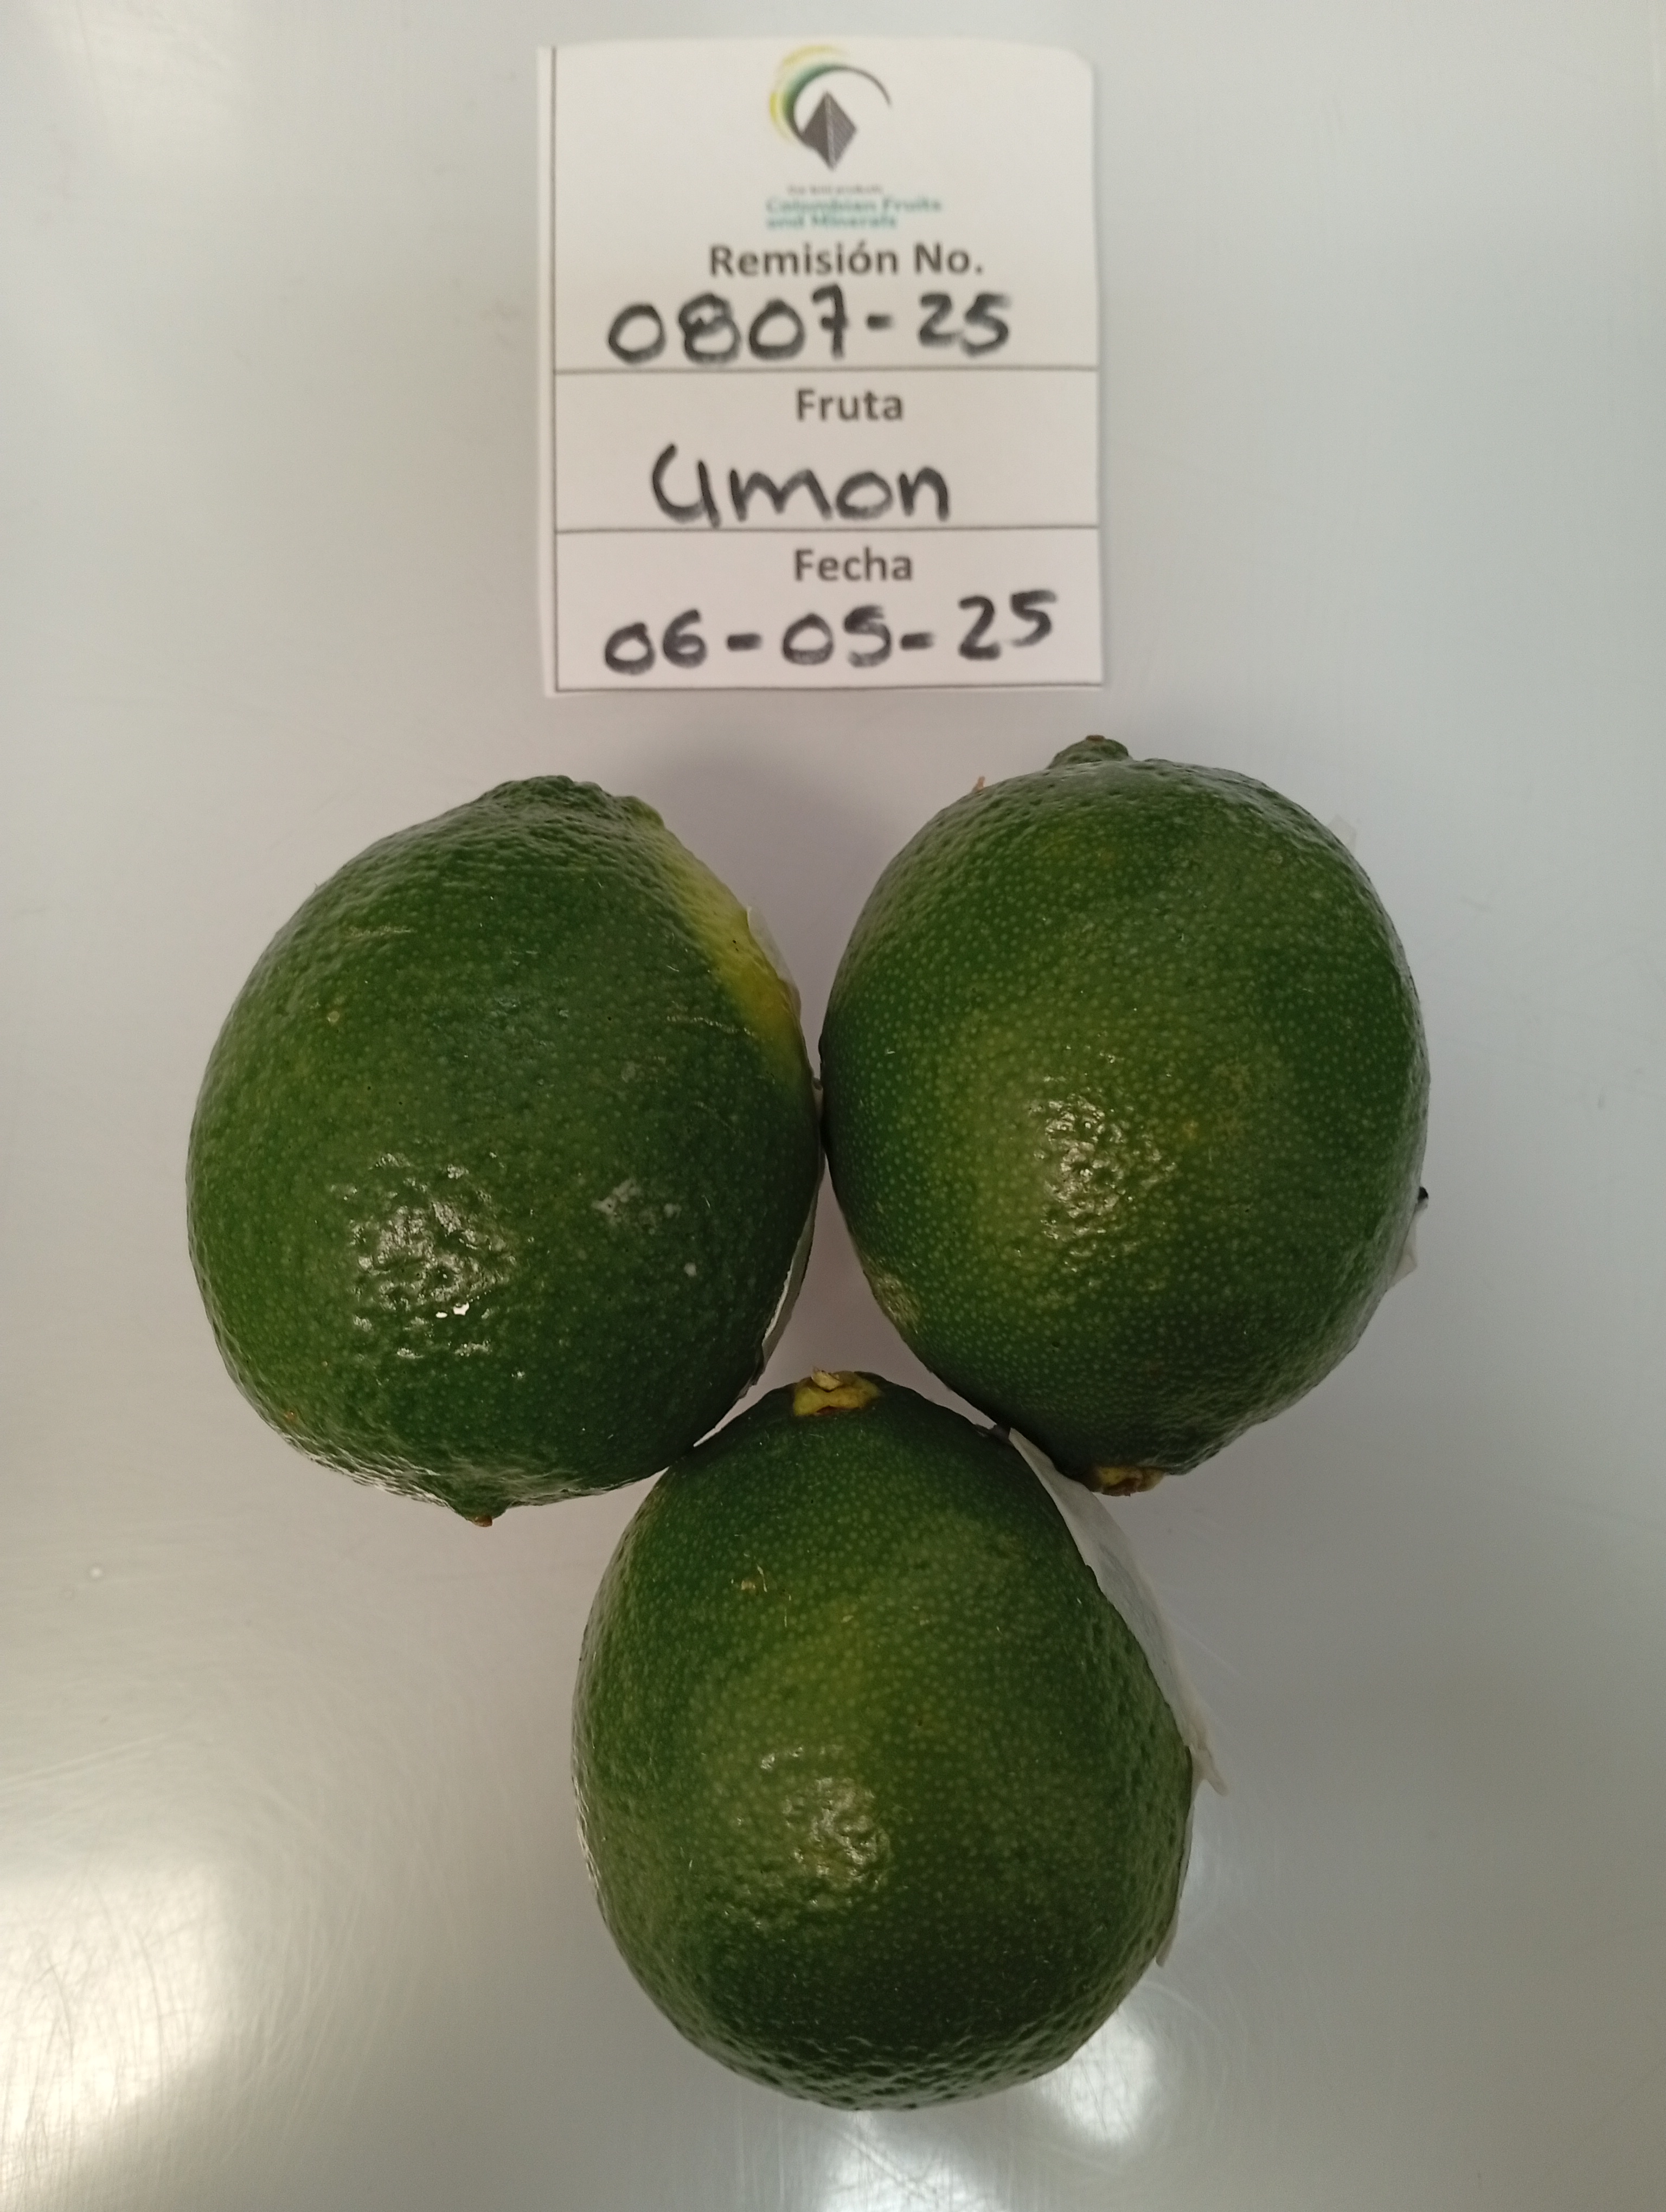 Our best products
Colombian Fruits
and Minerals
Remisión No.
0807-25
Fruta
Limon
Fecha
06-05-25